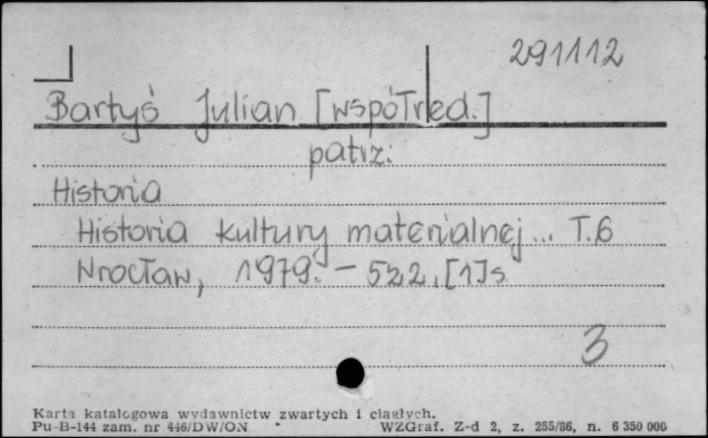 291112
Bartyś Julian [współred.]
patrz:
Historia
Historia kultury materialnej... T.6
Wrocław, 1979. - 522, [1] s
3
Karta katalogowa wydawnictw zwartych i ciągłych.
Pu-B-144 zam. nr 446/DW/ON WZGraf. Z-d 2, z. 255/86, n. 6 350 000